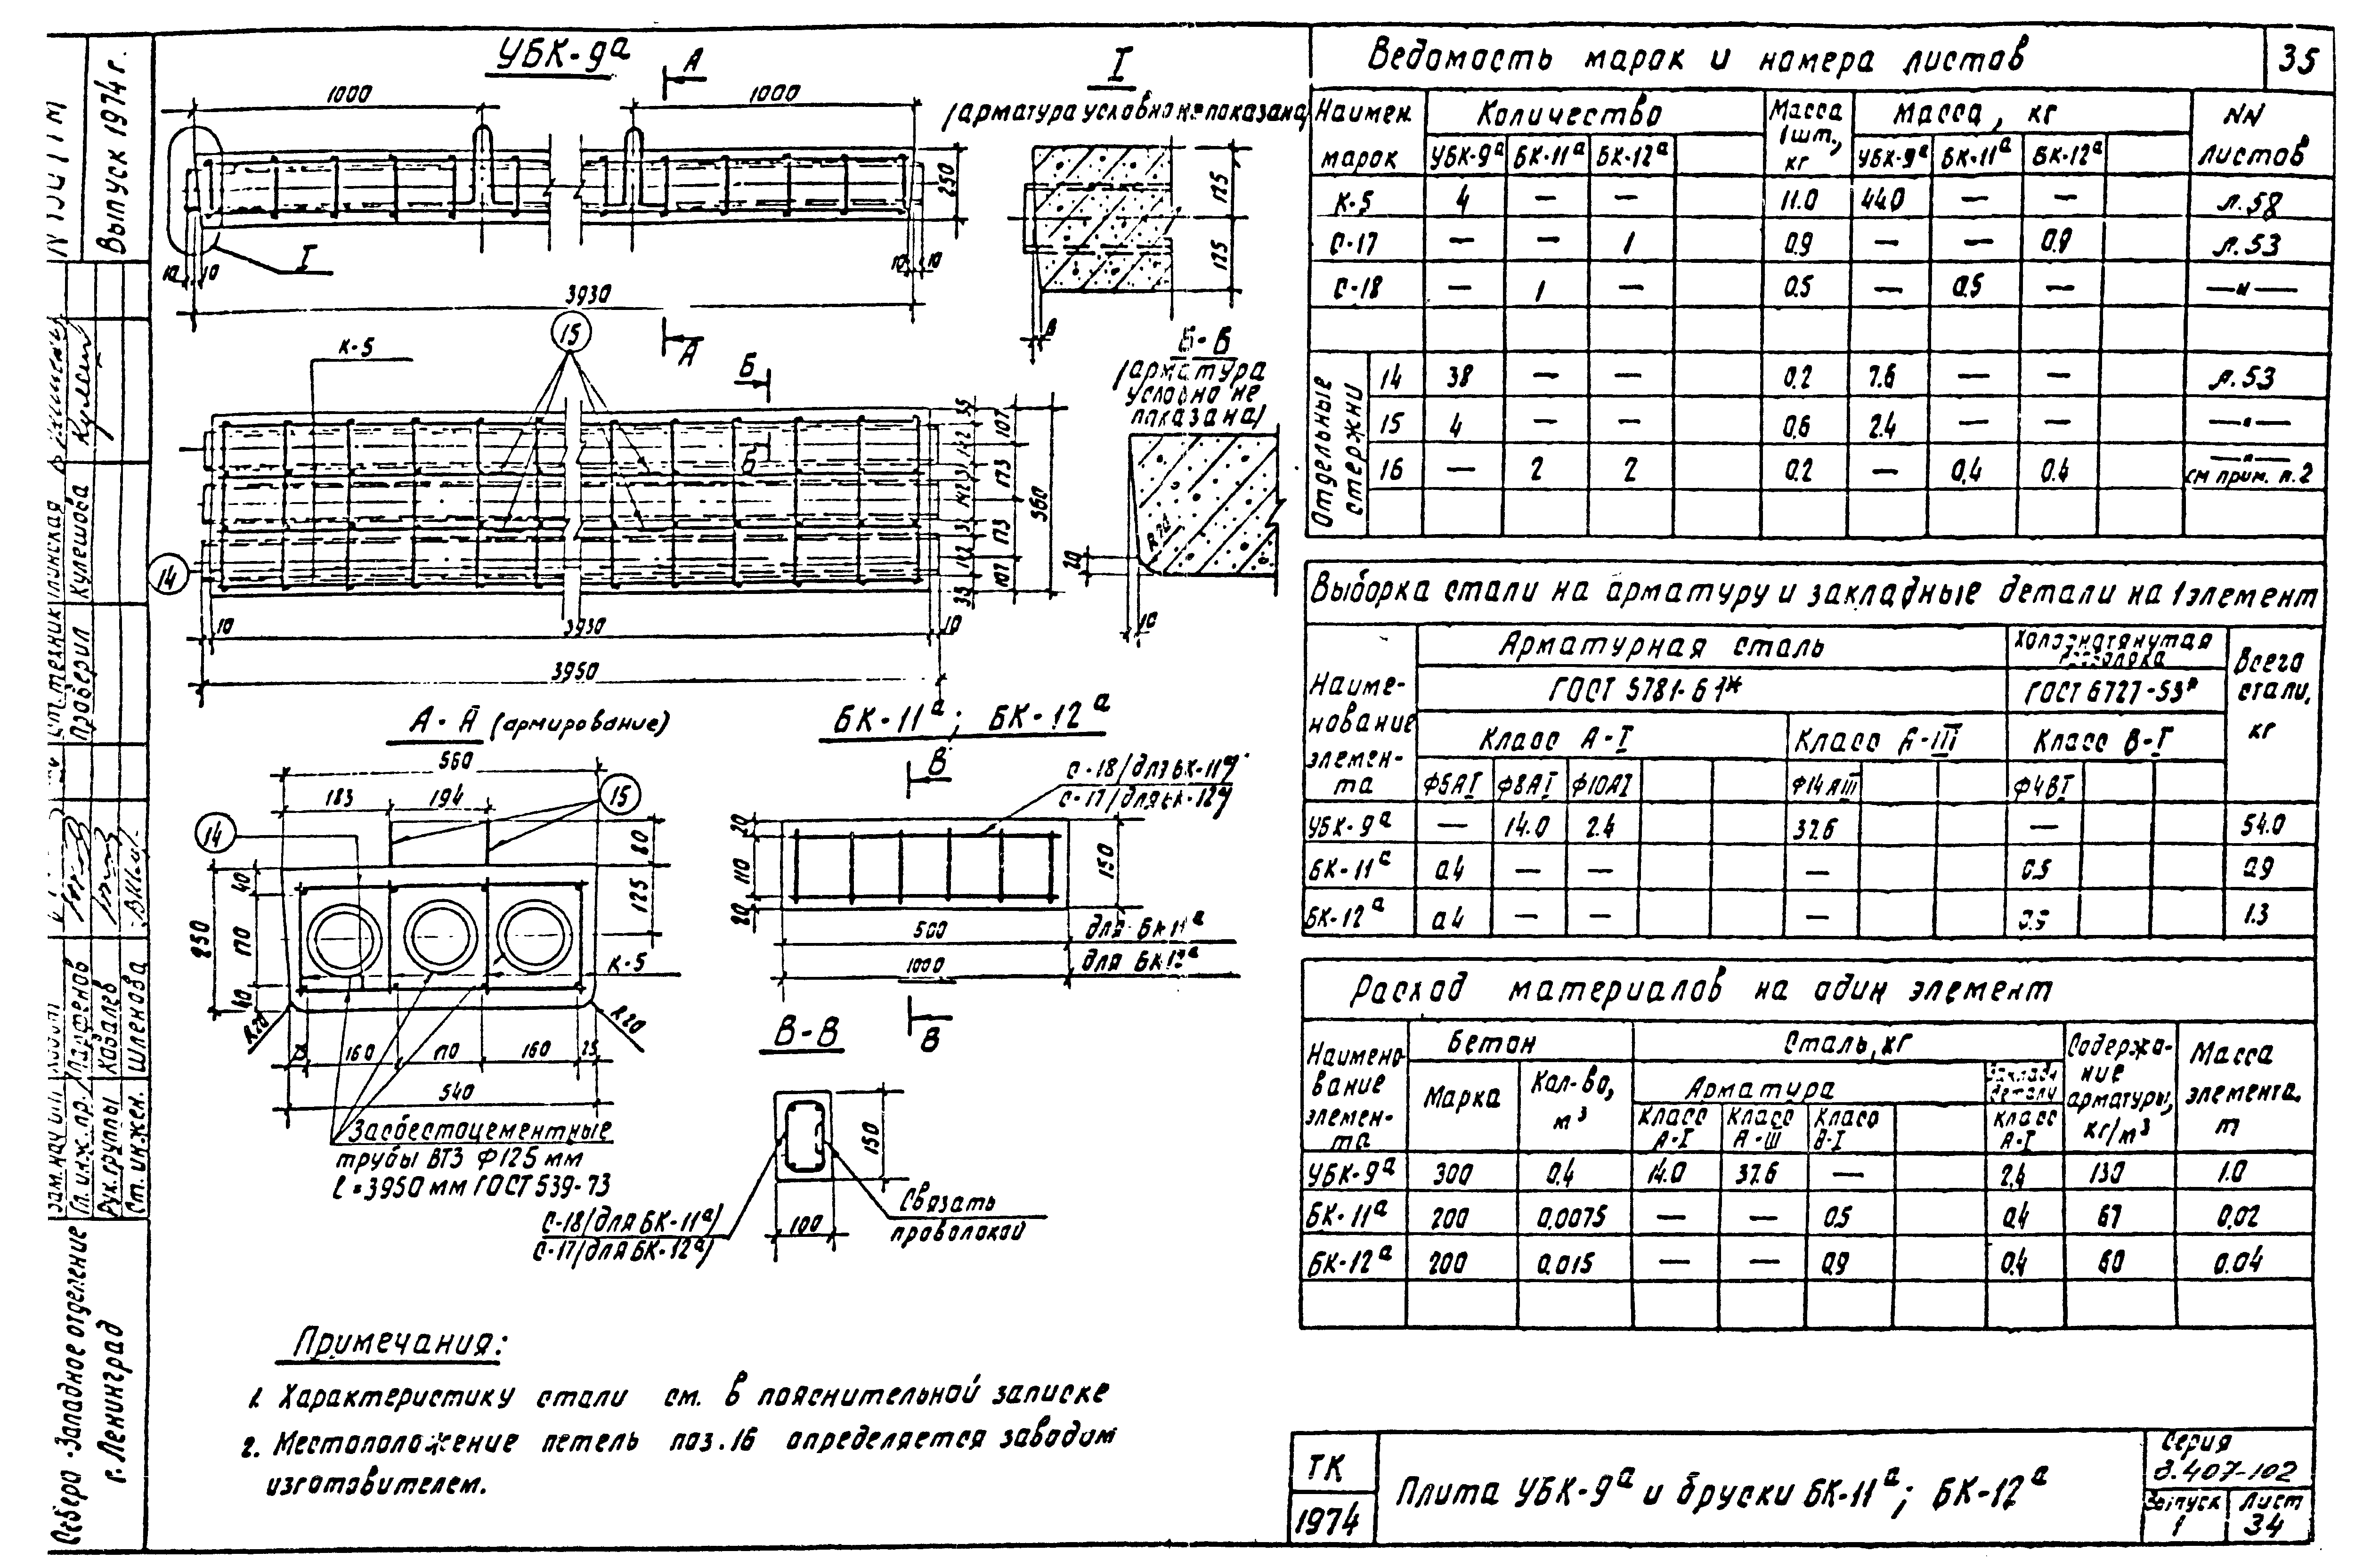 УБК-9а
А
1000
1000
250
I
10
10
10
10
3930
А
I
(арматура условно не показана)
125
125
8
К-5
15
Б
Б
14
35
107
142
31
173
142
31
173
142
107
35
560
10
3930
10
3950
Б-Б
(арматура
условно не
показана)
R20
20
10
А-А (армирование)
560
183
194
15
14
80
125
40
170
40
250
К-5
R20
R20
25
160
170
160
25
540
3асбестоцементные
трубы ВТЗ Ф125 мм
ℓ=3950 мм ГОСТ 539-73
БК-11а; БК-12а
В
С-18/для БК-11а/
С-17/для БК-12а/
20
110
20
150
500
для БК11а
1000
для БК12а
В
В-В
150
100
С-18/для БК-11а/
С-17/для БК-12а/
Связать
проволокой
Примечания:
1. Характеристику стали см. в пояснительной записке
2. Местоположение петель поз.16 определяется заводом
изготовителем.
Ведомость марок и номера листов
35
Наимен. марок
Количество
Масса 1шт., кг
Масса, кг
NN листов
УБК-9а БК-11а БК-12а УБК-9а БК-11а БК-12а
К-5 4 — — 11.0 44.0 — — л.58
С-17 — — 1 0.9 — — 0.9 л.53
С-18 — 1 — 0.5 — 0.5 — —"—
Отдельные стержни
14 38 — — 0.2 7.6 — — л.53
15 4 — — 0.6 2.4 — — —"—
16 — 2 2 0.2 — 0.4 0.4 —"— см прим. п.2
Выборка стали на арматуру и закладные детали на 1 элемент
Наименование элемента
Арматурная сталь
Холоднотянутая проволока
Всего стали, кг
ГОСТ 5781-61*
ГОСТ 6727-53*
Класс А-I
Класс А-III
Класс В-I
Ф5АI Ф8АI Ф10АI Ф14АIII Ф4ВI
УБК-9а — 14.0 2.4 37.6 — 54.0
БК-11а 0.4 — — — 0.5 0.9
БК-12а 0.4 — — — 0.9 1.3
Расход материалов на один элемент
Наименование элемента
Бетон
Сталь, кг
Содержание арматуры, кг/м³
Масса элемента, т
Марка
Кол-во, м³
Арматура
Закладн детали
Класс А-I
Класс А-III
Класс В-I
Класс А-I
УБК-9а 300 0.4 14.0 37.6 — 2.4 130 1.0
БК-11а 200 0.0075 — — 0.5 0.4 67 0.02
БК-12а 200 0.015 — — 0.9 0.4 60 0.04
ТК
1974
Плита УБК-9а и бруски БК-11а; БК-12а
Серия
3.407-102
Выпуск
1
Лист
34
Выпуск 1974 г.
Ст.техник
Проверил Кулешова
Гл. инж. пр. Парфенов
Рук.группы Ковалев
Ст. инжен. Шленова
Северо-Западное отделение
г. Ленинград